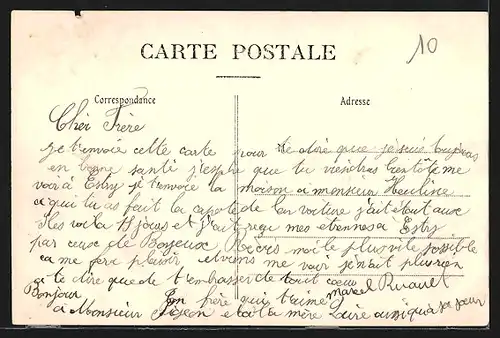 CARTE POSTALE
10
Correspondance
Adresse
Cher Frère
je t'envoie cette carte pour te dire que je suis toujours
en bonne santé j'espère que tu viendras bientôt me
voir à Estry je t'envoie la maison a monsieur Heuline
a qui tu as fait la capote de la voiture j'ait étout eue
voila 11 jours et j'ait reçu mes étrennes à Estry
par ceuse de Bayeux Ecris moi le plus vite possible
ca me fera plaisir et viens me voir j'ai plus rien
a te dire que de t'embrasser de tout cœur
Ton frère qui t'aime Marcel Ruault
Bonjour
à Monsieur et à la mère ainsi qua sa sœur